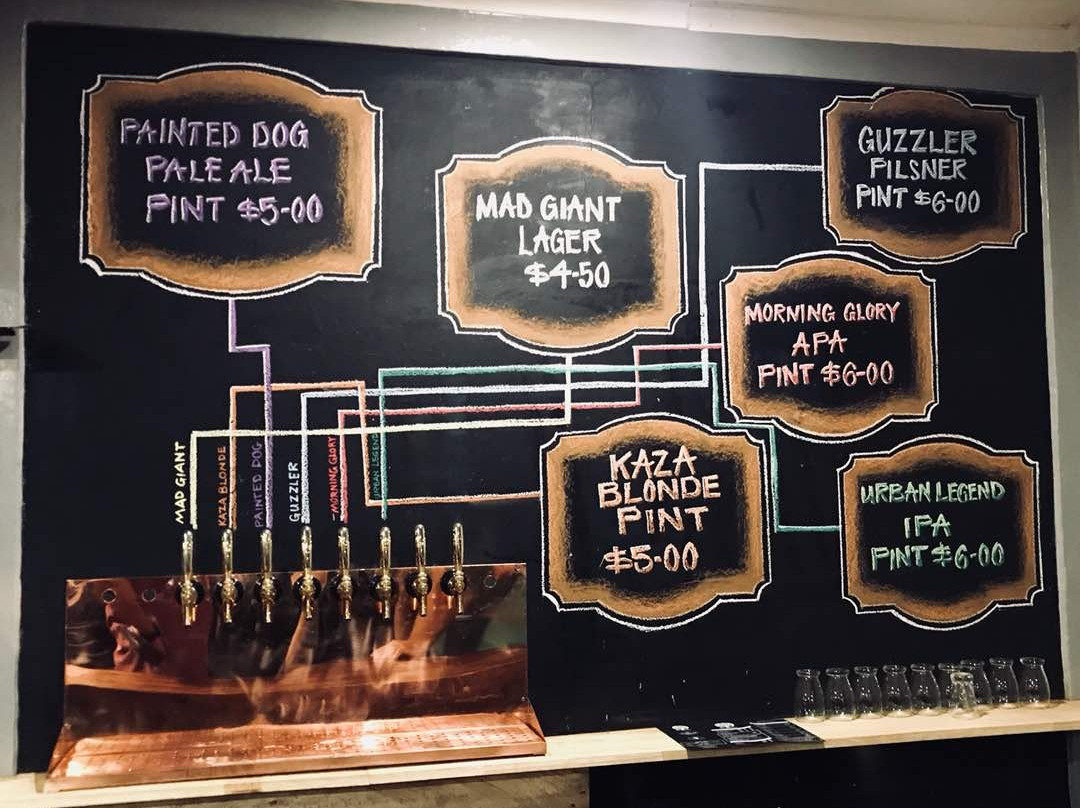 PAINTED DOG
PALE ALE
PINT $5-00
MAD GIANT
LAGER
$4-50
GUZZLER
PILSNER
PINT $6-00
MORNING GLORY
APA
PINT $6-00
KAZA
BLONDE
PINT
$5-00
URBAN LEGEND
IPA
PINT $6-00
MAD GIANT
KAZA BLONDE
PAINTED DOG
GUZZLER
MORNING GLORY
URBAN LEGEND